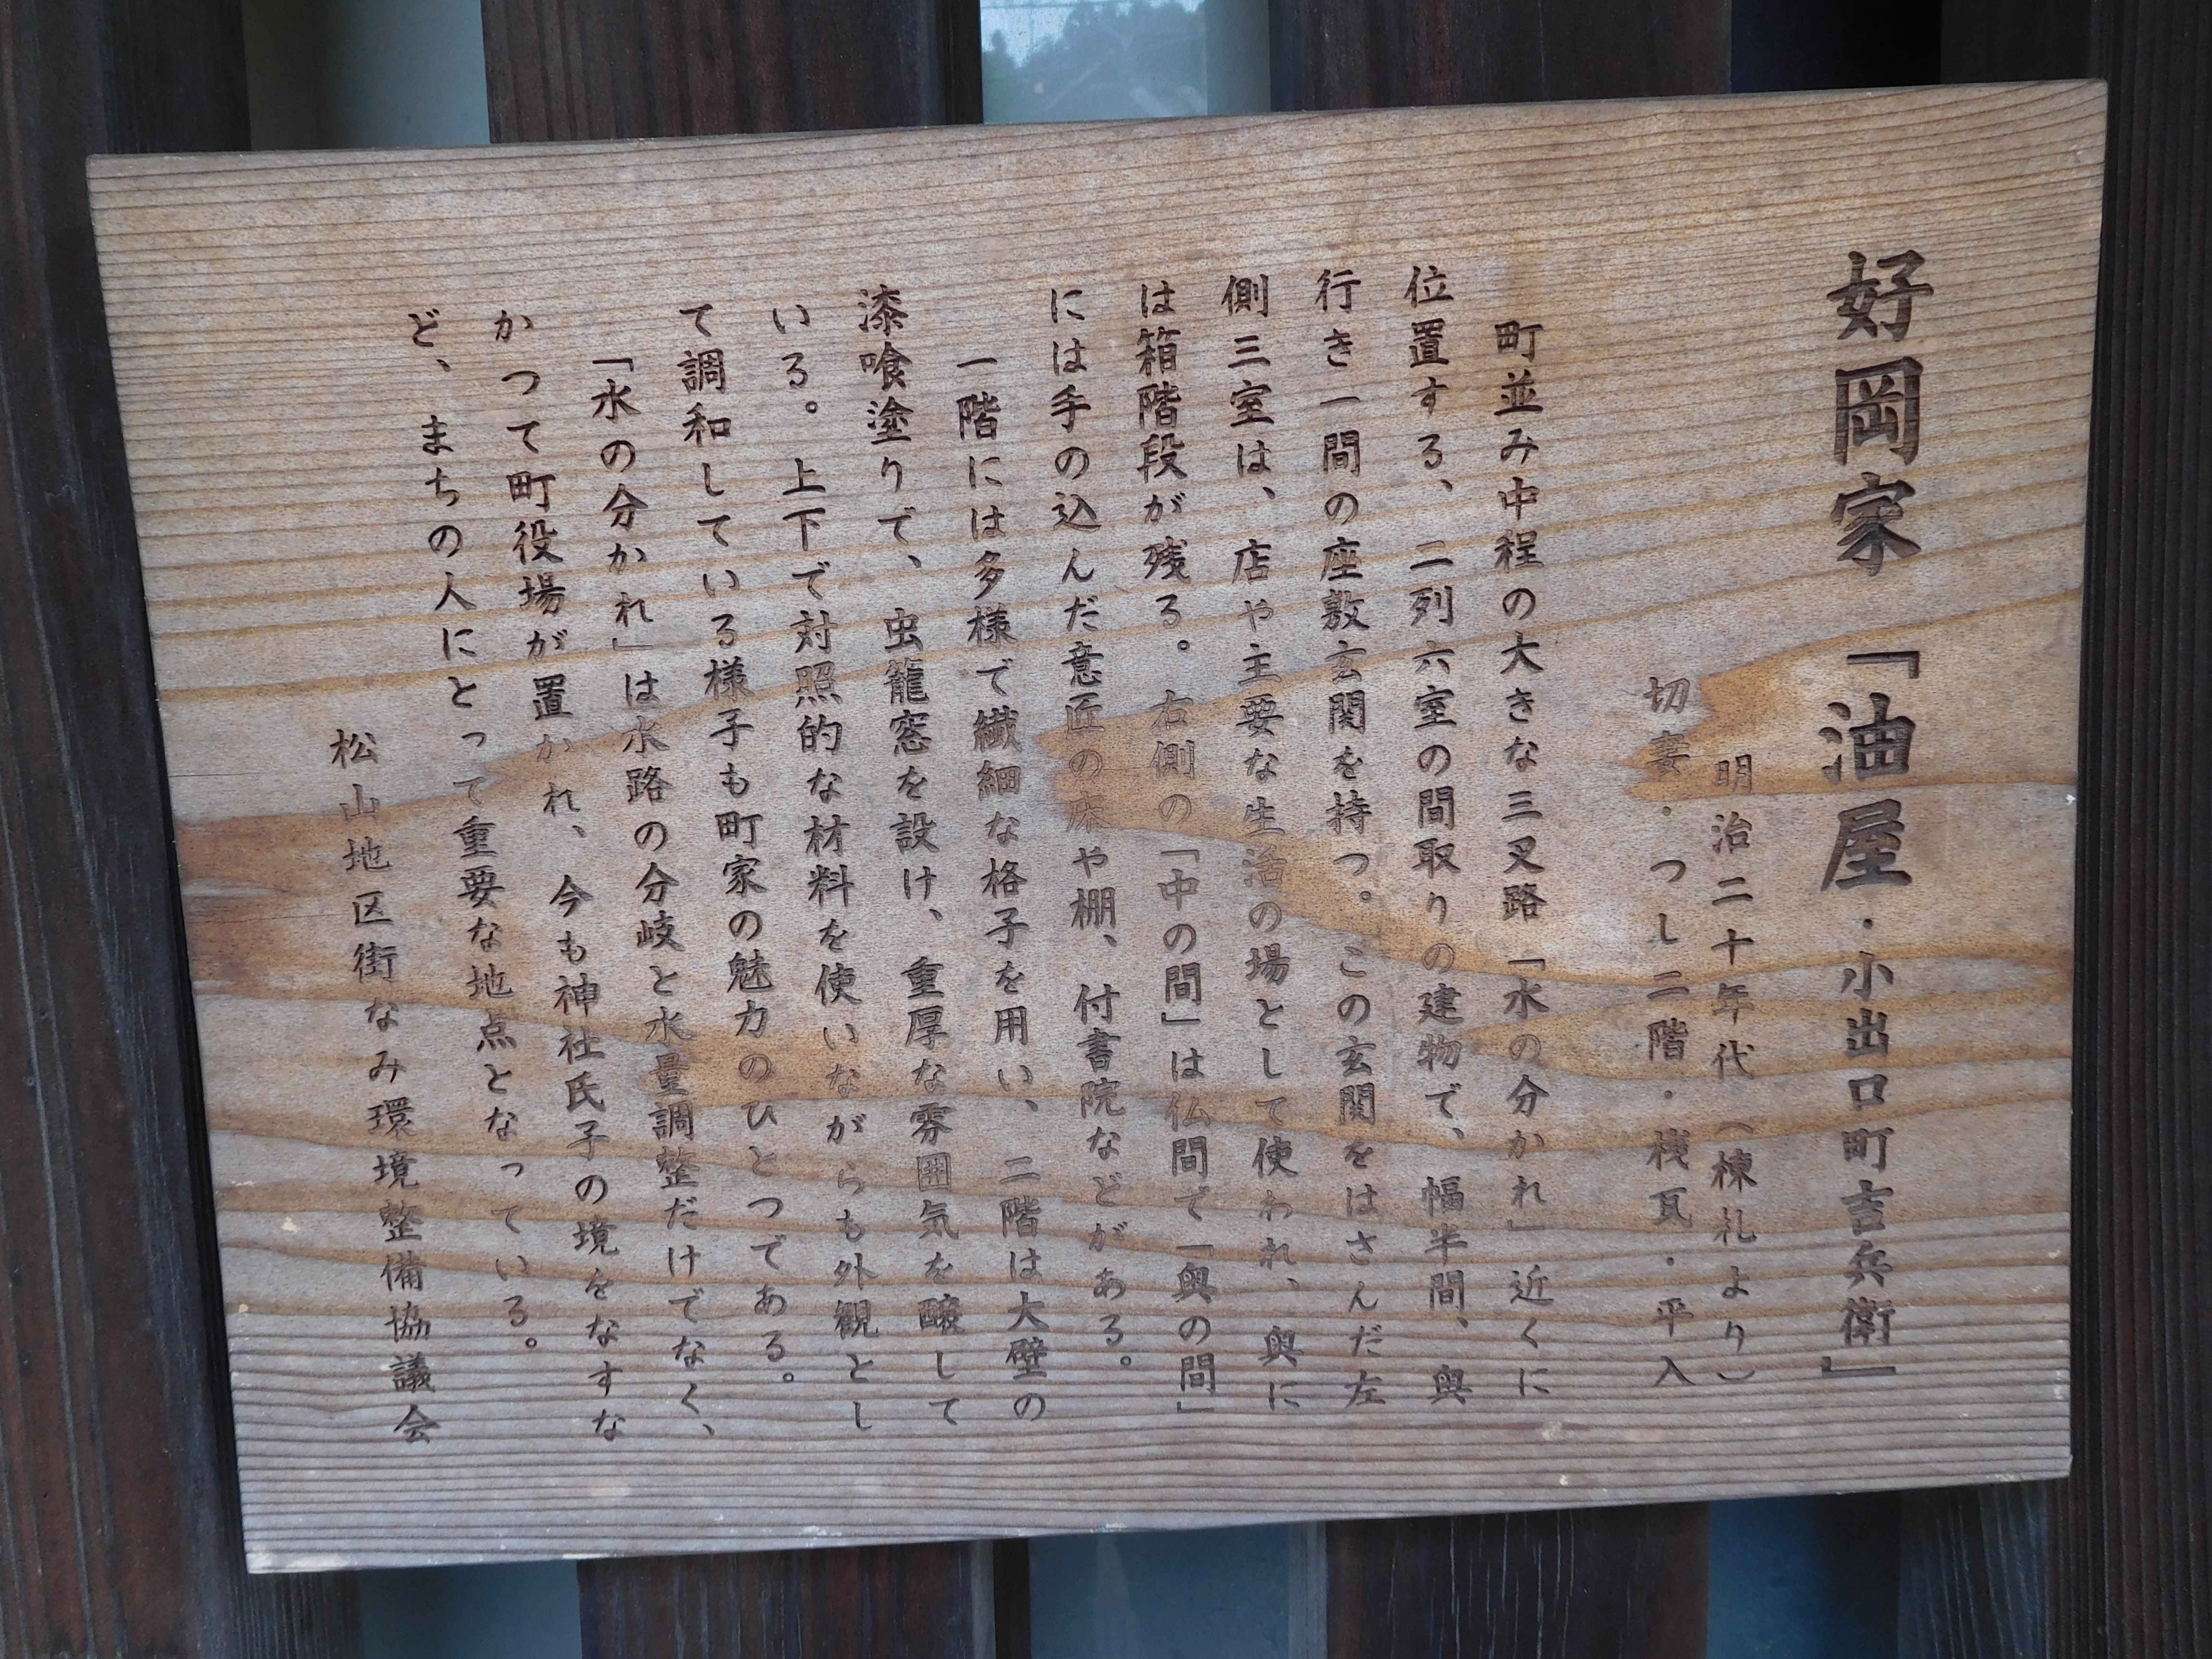 好岡家「油屋・小出口町吉兵衛」
明治二十年代(棟札より)
切妻・つし二階・桟瓦・平入
町並み中程の大きな三叉路「水の分かれ」近くに
位置する、二列六室の間取りの建物で、幅半間、奥
行き一間の座敷玄関を持つ。この玄関をはさんだ左
側三室は、店や主要な生活の場として使われ、奥に
は箱階段が残る。右側の「中の間」は仏間で「奥の間」
には手の込んだ意匠の床や棚、付書院などがある。
一階には多様で繊細な格子を用い、二階は大壁の
漆喰塗りで、虫籠窓を設け、重厚な雰囲気を醸して
いる。上下で対照的な材料を使いながらも外観とし
て調和している様子も町家の魅力のひとつである。
「水の分かれ」は水路の分岐と水量調整だけでなく、
かつて町役場が置かれ、今も神社氏子の境をなすな
ど、まちの人にとって重要な地点となっている。
松山地区街なみ環境整備協議会